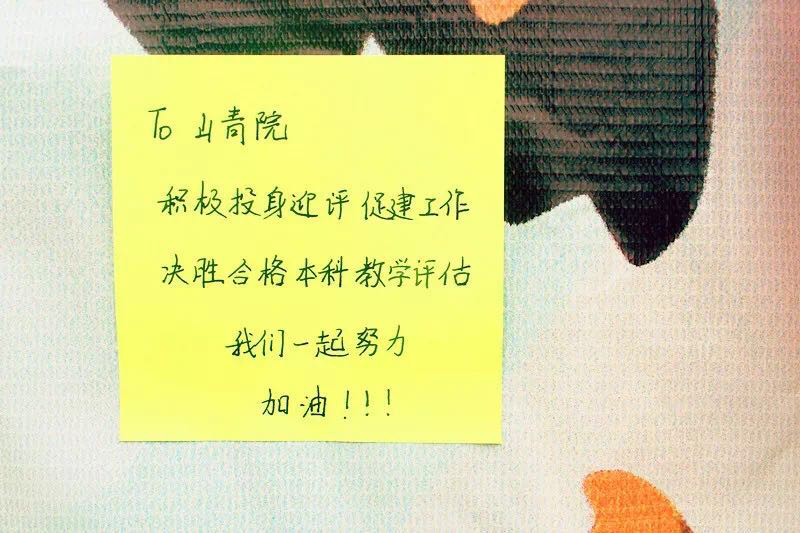 To 山青院
积极投身迎评促建工作
决胜合格本科教学评估
我们一起努力
加油！！！